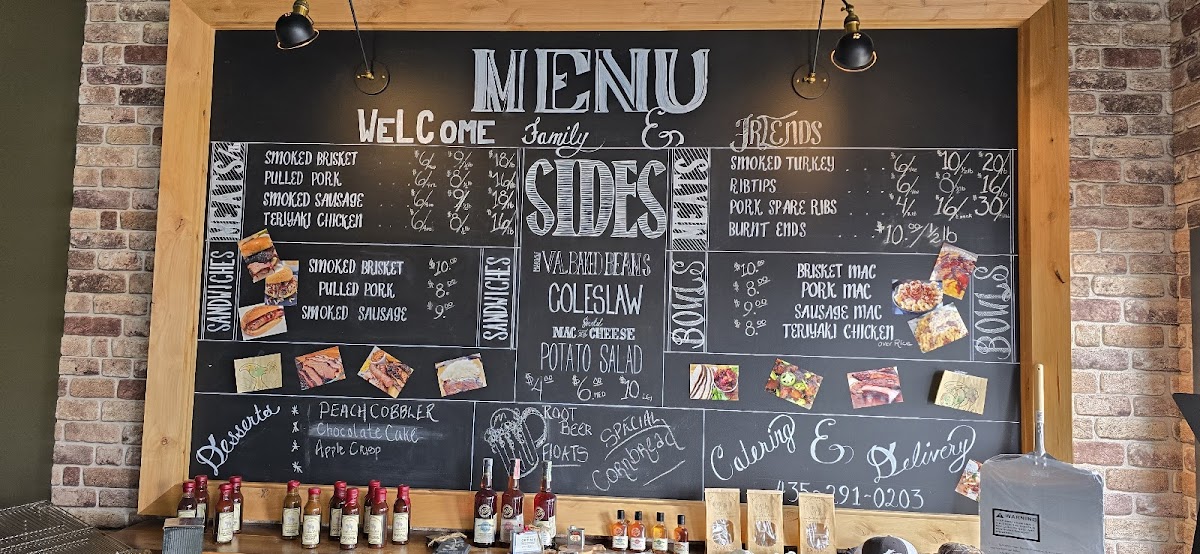 MENU
WELCOME Family & FRIENDS
MEATS
SMOKED BRISKET $6/ $9/ $18/lb
PULLED PORK $6/ $8/ $16/
SMOKED SAUSAGE $6/ $9/ $18/
TERIYAKI CHICKEN $6/ $8/ $16/
SIDES
MEATS
SMOKED TURKEY $6/ $10/ $20/
RIBTIPS $6/ $8/ $16/
PORK SPARE RIBS $4/ $16/ $30/
BURNT ENDS $10.00/½ lb
SANDWICHES
SMOKED BRISKET $10.00
PULLED PORK $8.00
SMOKED SAUSAGE $9.00
SANDWICHES
BAKED BEANS
COLESLAW
MAC CHEESE
POTATO SALAD
$4 $6 $10
BOWLS
$10.00 BRISKET MAC
$8.00 PORK MAC
$9.00 SAUSAGE MAC
$8.00 TERIYAKI CHICKEN
over Rice
BOWLS
Desserts
* PEACH COBBLER
* Chocolate Cake
* Apple Crisp
*
ROOT
BEER
FLOATS
SPECIAL
CORNBREAD
Catering & Delivery
435-291-0203
WARNING